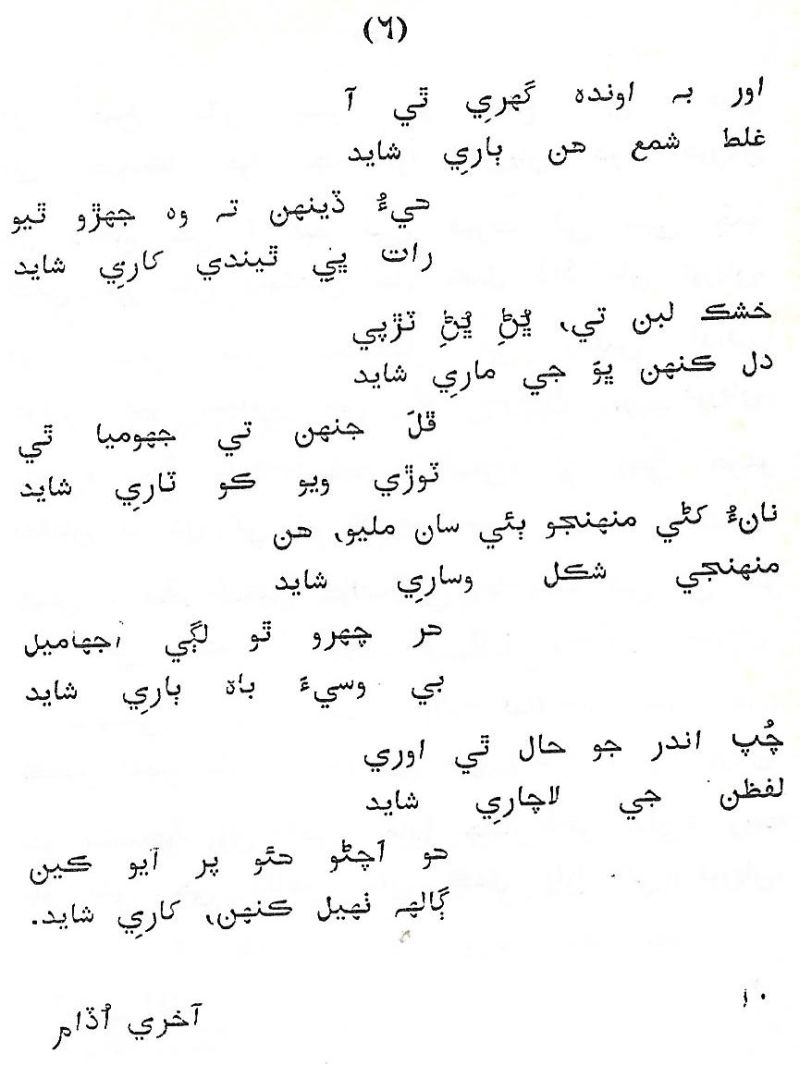 (٦)
اور بہ اونده گهري ٿي آ
غلط شمع هن ٻاري شايد
هيءُ ڏينهن تہ وہ جهڙو ٿيو
رات ڀي ٿيندي ڪاري شايد
خشڪ لبن تي، ڀُڻِ ڀُڻِ تڙپي
دل ڪنهن ڀوَ جي ماري شايد
ڦلَ جنهن تي جهوميا ٿي
ٽوڙي ويو ڪو ٽاري شايد
نانءُ کڻي منهنجو ٻئي سان مليو، هن
منهنجي شڪل وساري شايد
هر چهرو ٿو لڳي اُجهاميل
بي وسيءَ باهه ٻاري شايد
چُپ اندر جو حال ٿي اوري
لفظن جي لاچاري شايد
هو اچڻو هئو پر آيو ڪين
ڳالهہ ٺهيل ڪنهن، ڪاري شايد.
١٠
آخري اُڏام